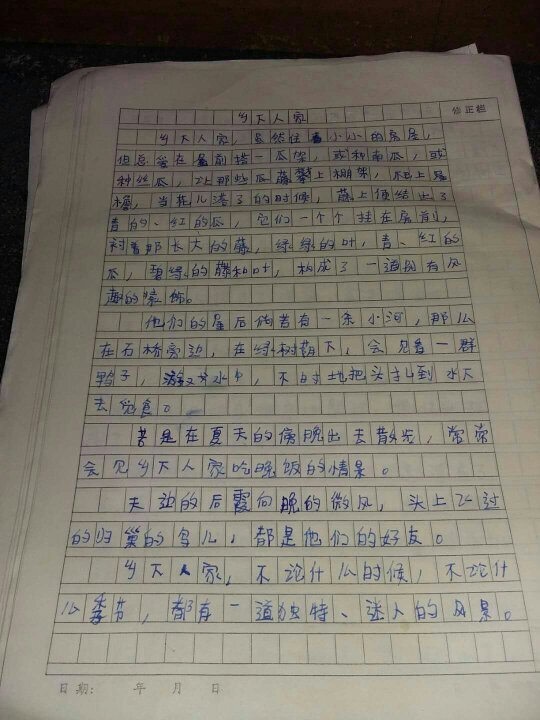 修正栏
乡下人家
乡下人家，虽然住着小小的房屋，
但总爱在屋前搭一瓜架，或种南瓜，或
种丝瓜，让那些瓜藤攀上棚架，爬上屋
檐，当花儿落了的时候，藤上便结出了
青的、红的瓜，它们一个个挂在房前，
衬着那长大的藤，绿绿的叶，青、红的
瓜，碧绿的藤和叶，构成了一道别有风
趣的装饰。
他们的屋后倘若有一条小河，那么
在石桥旁边，在绿树荫下，会见着一群
鸭子，游戏水中，不时地把头扎到水下
去觅食。
若是在夏天的傍晚出去散步，常常
会见乡下人家吃晚饭的情景。
天边的后霞向晚的微风，头上飞过
的归巢的鸟儿，都是他们的好友。
乡下人家，不论什么的时候，不论什
么季节，都有一道独特、迷人的风景。
日期： 年 月 日